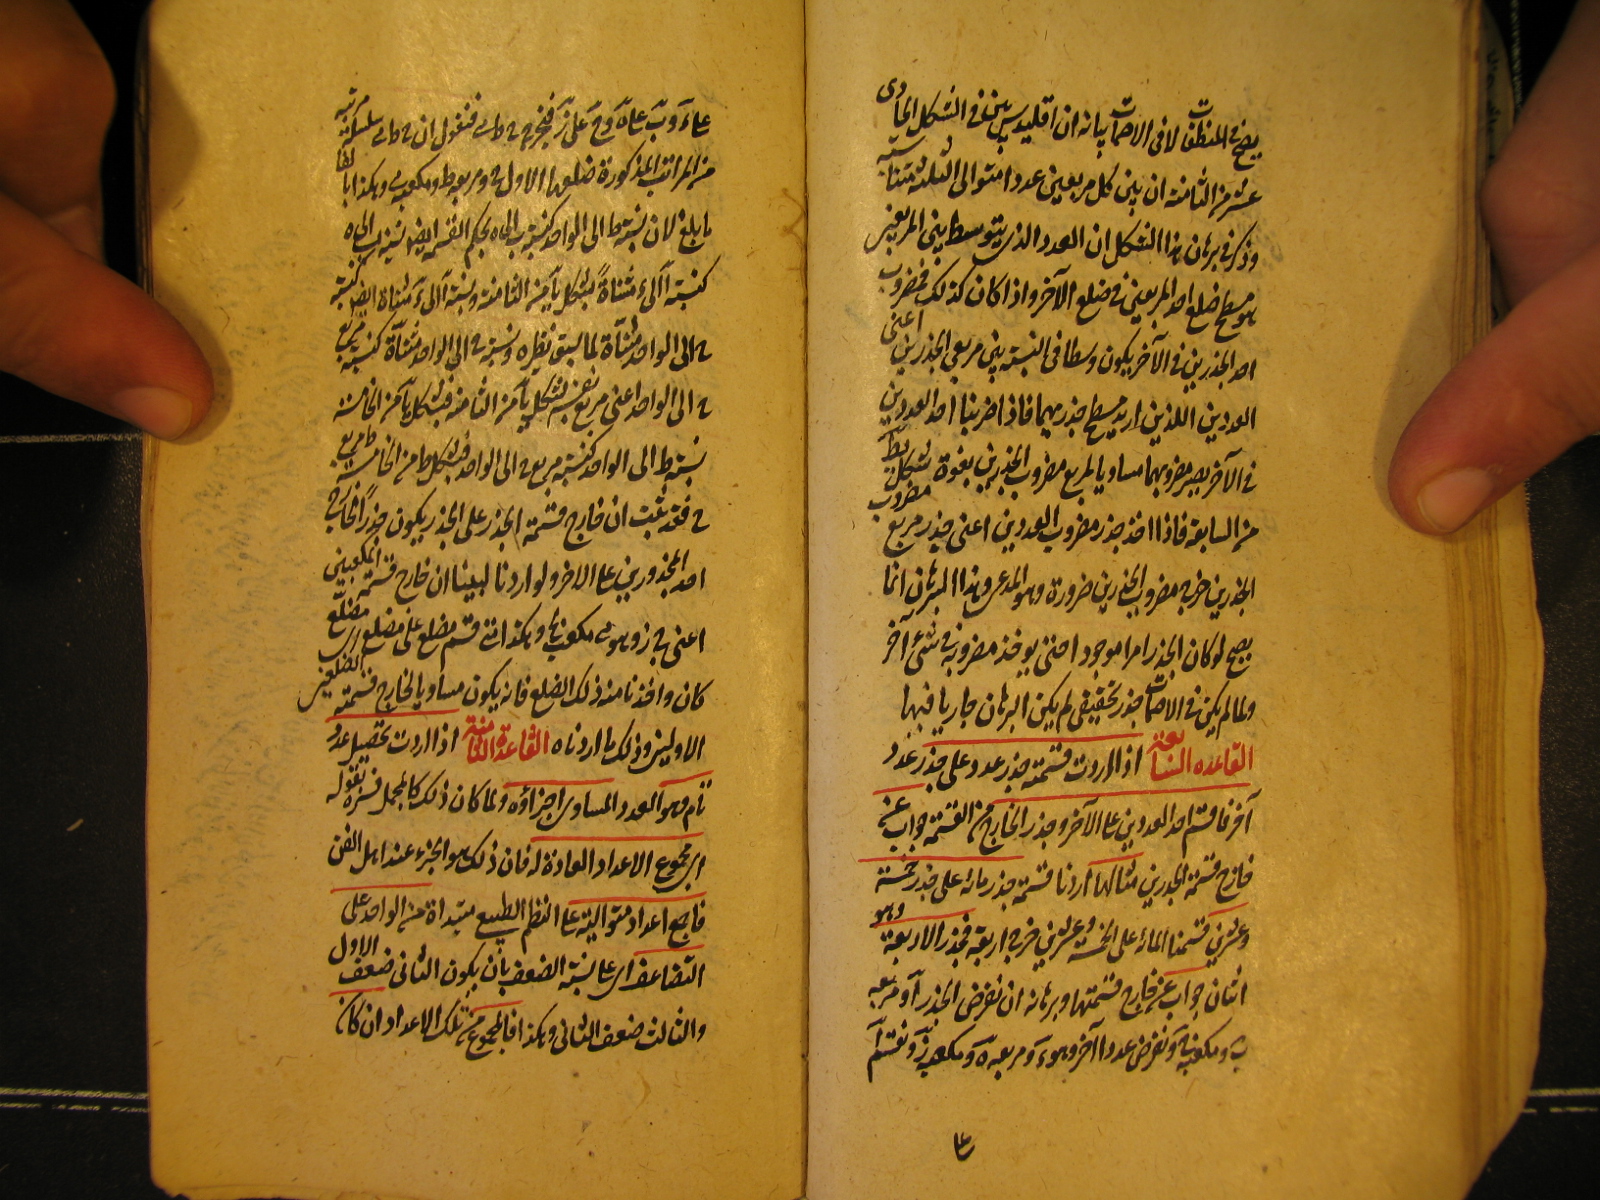 يصح فى المنطقات لا فى الاصمات بيانه ان اقليدس بين فى الشكل الحادى
عشر من الثامنة ان بين كل مربعين عددا متوالى الثلثة متناسبة
وذكر فى برهان هذا الشكل ان العدد الذى يتوسط بينى المربعين
هو مسطح ضلع احد المربعين فى ضلع الآخر واذا كان كذلك فمضروب
احد الجذرين فى الآخر يكون وسطا فى النسبة بين مربعى الجذرين اعنى
العددين اللذين اريد مسطح جذريهما فاذا ضربنا احد العددين
فى الآخر يصير مضروبهما مساويا لمربع مضروب الجذرين بقوة شكل
من السابعة فاذا اخذ جذر مضروب العددين اعنى جذر مربع مضروب
الجذرين خرج مضروب الجذرين ضرورة وهو المدعى وهذا البرهان انما
يصح لو كان الجذر امرا موجودا حتى يوخذ مضروبه فى شئ آخر
ولما لم يكن فى الاصمات جذر تحقيقى لم يكن البرهان جاريا فيها
القاعده السابعة اذا اردت قسمة جذر عدد على جذر عدد
آخر فاقسم احد العددين على الآخر وجذر الخارج من القسمة جواب عن
خارج قسمة الجذرين مثالها اردنا قسمة جذر مائة على جذر خمسة
وعشرين قسمنا المائة على الخمسة وعشرين خرج اربعة فجذر الاربعة وهو
اثنان جواب عن خارج قسمتها وبرهانه ان نفرض الجذر آ ومربعه
ب ومكعبه ونفرض عددا آخر وهو ء ومربعه ه ومكعبه ز ونقسم آ
على
على ء و ب على ه و ج على ز فيخرج فنقول ان سلسلة مرتبة
من المراتب المذكورة ضلعها الاول ح ومربعه ط ومكعبه ى وهكذا بالغا
ما بلغ لان نسبة ط الى الواحد كنسبة ب الى ه بحكم القسمة ايضا نسبة ب الى ه
كنسبة آ الى ء مثناة بشكل يا من الثامنة ونسبة آ الى ء مثناة ايضا كنسبة
ح الى الواحد مثناة لما سبق نظيره ونسبة ح الى الواحد مثناة كنسبة مربع
ح الى الواحد اعنى مربع نفسه بشكل يا من الثامنة فبشكل يا من الخامسة
نسبة ط الى الواحد كنسبة مربع ح الى الواحد فبشكل ط من الخامسة ط مربع
ح فقد ثبت ان خارج قسمة الجذر على الجذر يكون جذر الخارج
احد المجذورين على الآخر ولو اردنا لبينا ان خارج قسمة المكعبين
اعنى ج ز وهو ى مكعب ح وهكذا متى قسم مضلع على مضلع اى مضلع
كان واخذنا منه ذلك الضلع فانه يكون مساويا لخارج قسمة الضلعين
الاولين وذلك ما اردناه القاعدة الثامنة اذا اردت تحصيل عدد
تام وهو العدد المساوى اجزاؤه ولما كان ذلك كالمجمل فسره بقوله
اى مجموع الاعداد العادة له فان ذلك هو الجزء عند اهل الفن
فاجمع اعداد متوالية على النظم الطبيعى مبتداة من الواحد على
التضاعف اى على نسبة الضعف بان يكون الثانى ضعف الاول
والثالث ضعف الثانى وهكذا فالمجموع من تلك الاعداد ان كان